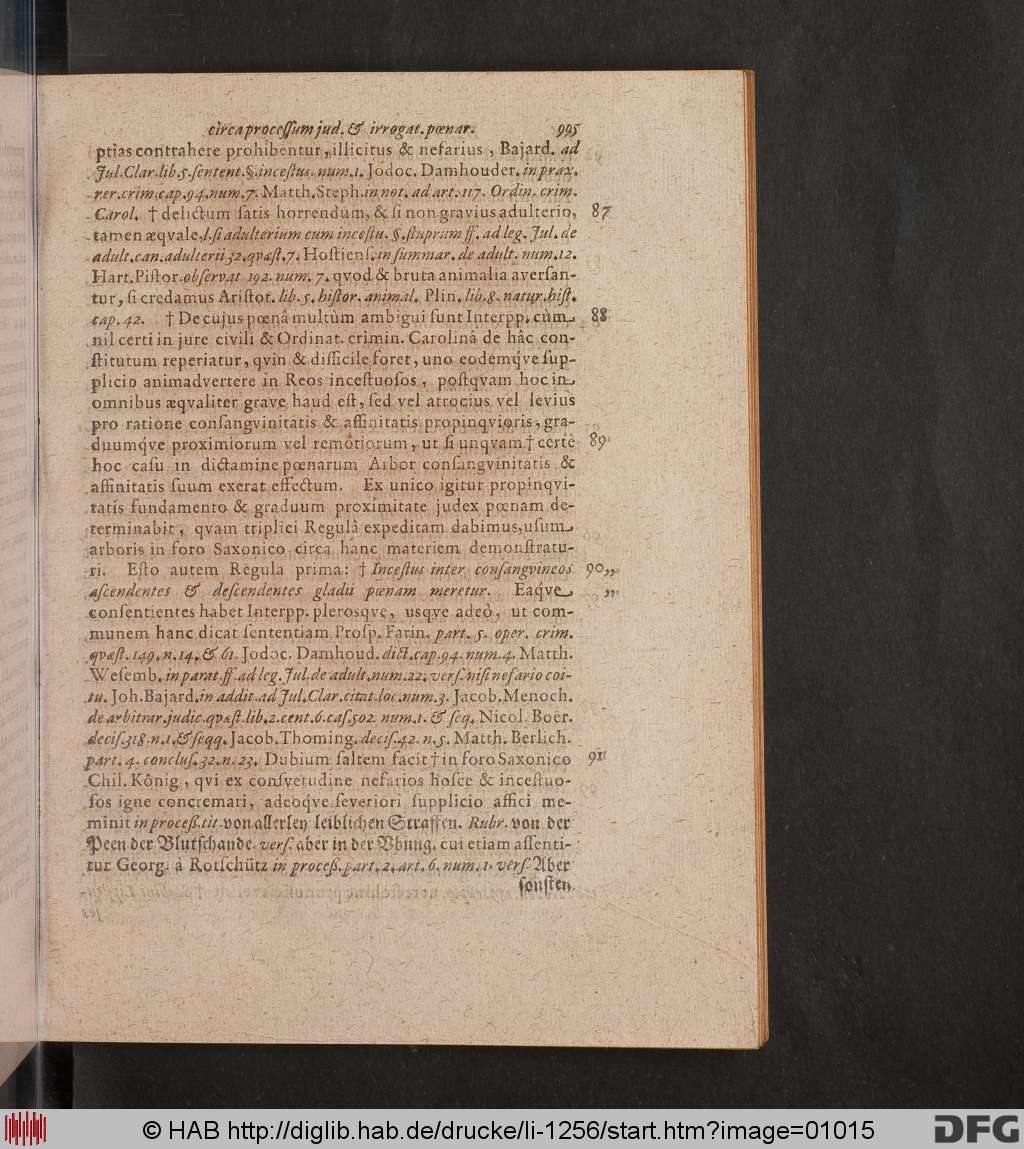 circa processum jud. & irrogat. pœnar. 995
ptias contrahere prohibentur, illicitus & nefarius, Bajard. ad
Jul. Clar. lib. 5. sentent. §. incestus. num. 1. Jodoc. Damhouder. in prax.
rer. crim. cap. 94. num. 7. Matth. Steph. in not. ad art. 117. Ordin. crim.
Carol. † delictum satis horrendum, & si non gravius adulterio, 87
tamen æqvale, l. si adulterium cum incestu. §. stuprum ff. ad leg. Jul. de
adult. can. adulterii 32. qvæst. 7. Hostiens. in summar. de adult. num. 12.
Hart. Pistor. observat. 192. num. 7. qvod & bruta animalia aversan-
tur, si credamus Aristot. lib. 5. histor. animal. Plin. lib. 8. natur. hist.
cap. 42. † De cujus pœnâ multùm ambigui sunt Interpp. cùm 88
nil certi in jure civili & Ordinat. crimin. Carolinâ de hâc con-
stitutum reperiatur, qvin & difficile foret, uno eodemq́ve sup-
plicio animadvertere in Reos incestuosos, postqvam hoc in
omnibus æqvaliter grave haud est, sed vel atrocius vel levius
pro ratione consangvinitatis & affinitatis propinqvioris, gra-
duumq́ve proximiorum vel remotiorum, ut si unqvam † certè 89
hoc casu in dictamine pœnarum Arbor consangvinitatis &
affinitatis suum exerat effectum. Ex unico igitur propinqvi-
tatis fundamento & graduum proximitate judex pœnam de-
terminabit, qvam triplici Regulâ expeditam dabimus, usum
arboris in foro Saxonico circa hanc materiem demonstratu-
ri. Esto autem Regula prima: † Incestus inter consangvineos 90 „
ascendentes & descendentes gladii pœnam meretur. Eaq́ve „
consentientes habet Interpp. plerosqve, usqve adeò, ut com-
munem hanc dicat sententiam Prosp. Farin. part. 5. oper. crim.
qvæst. 149. n. 14. & 61. Jodoc. Damhoud. dict. cap. 94. num. 4. Matth.
Wesemb. in parat. ff. ad leg. Jul. de adult. num. 22. vers. nisi nefario coi-
tu. Joh. Bajard. in addit. ad Jul. Clar. citat. loc. num. 3. Jacob. Menoch.
de arbitrar. judic. qvæst. lib. 2. cent. 6. cas. 502. num. 1. & seq. Nicol. Boër.
decis. 318. n. 1. & seqq. Jacob. Thoming. decis. 42. n. 5. Matth. Berlich.
part. 4. conclus. 32. n. 23. Dubium saltem facit † in foro Saxonico 91
Chil. König, qvi ex consvetudine nefarios hosce & incestuo-
sos igne concremari, adeoqve severiori supplicio affici me-
minit in proceß. tit. von allerley leiblichen Straffen. Rubr. von der
Peen der Blutschande. vers. aber in der Vbung. cui etiam assenti-
tur Georg. à Rotschütz in proceß. part. 2. art. 6. num. 1. vers. Aber
sonsten
© HAB http://diglib.hab.de/drucke/li-1256/start.htm?image=01015
DFG